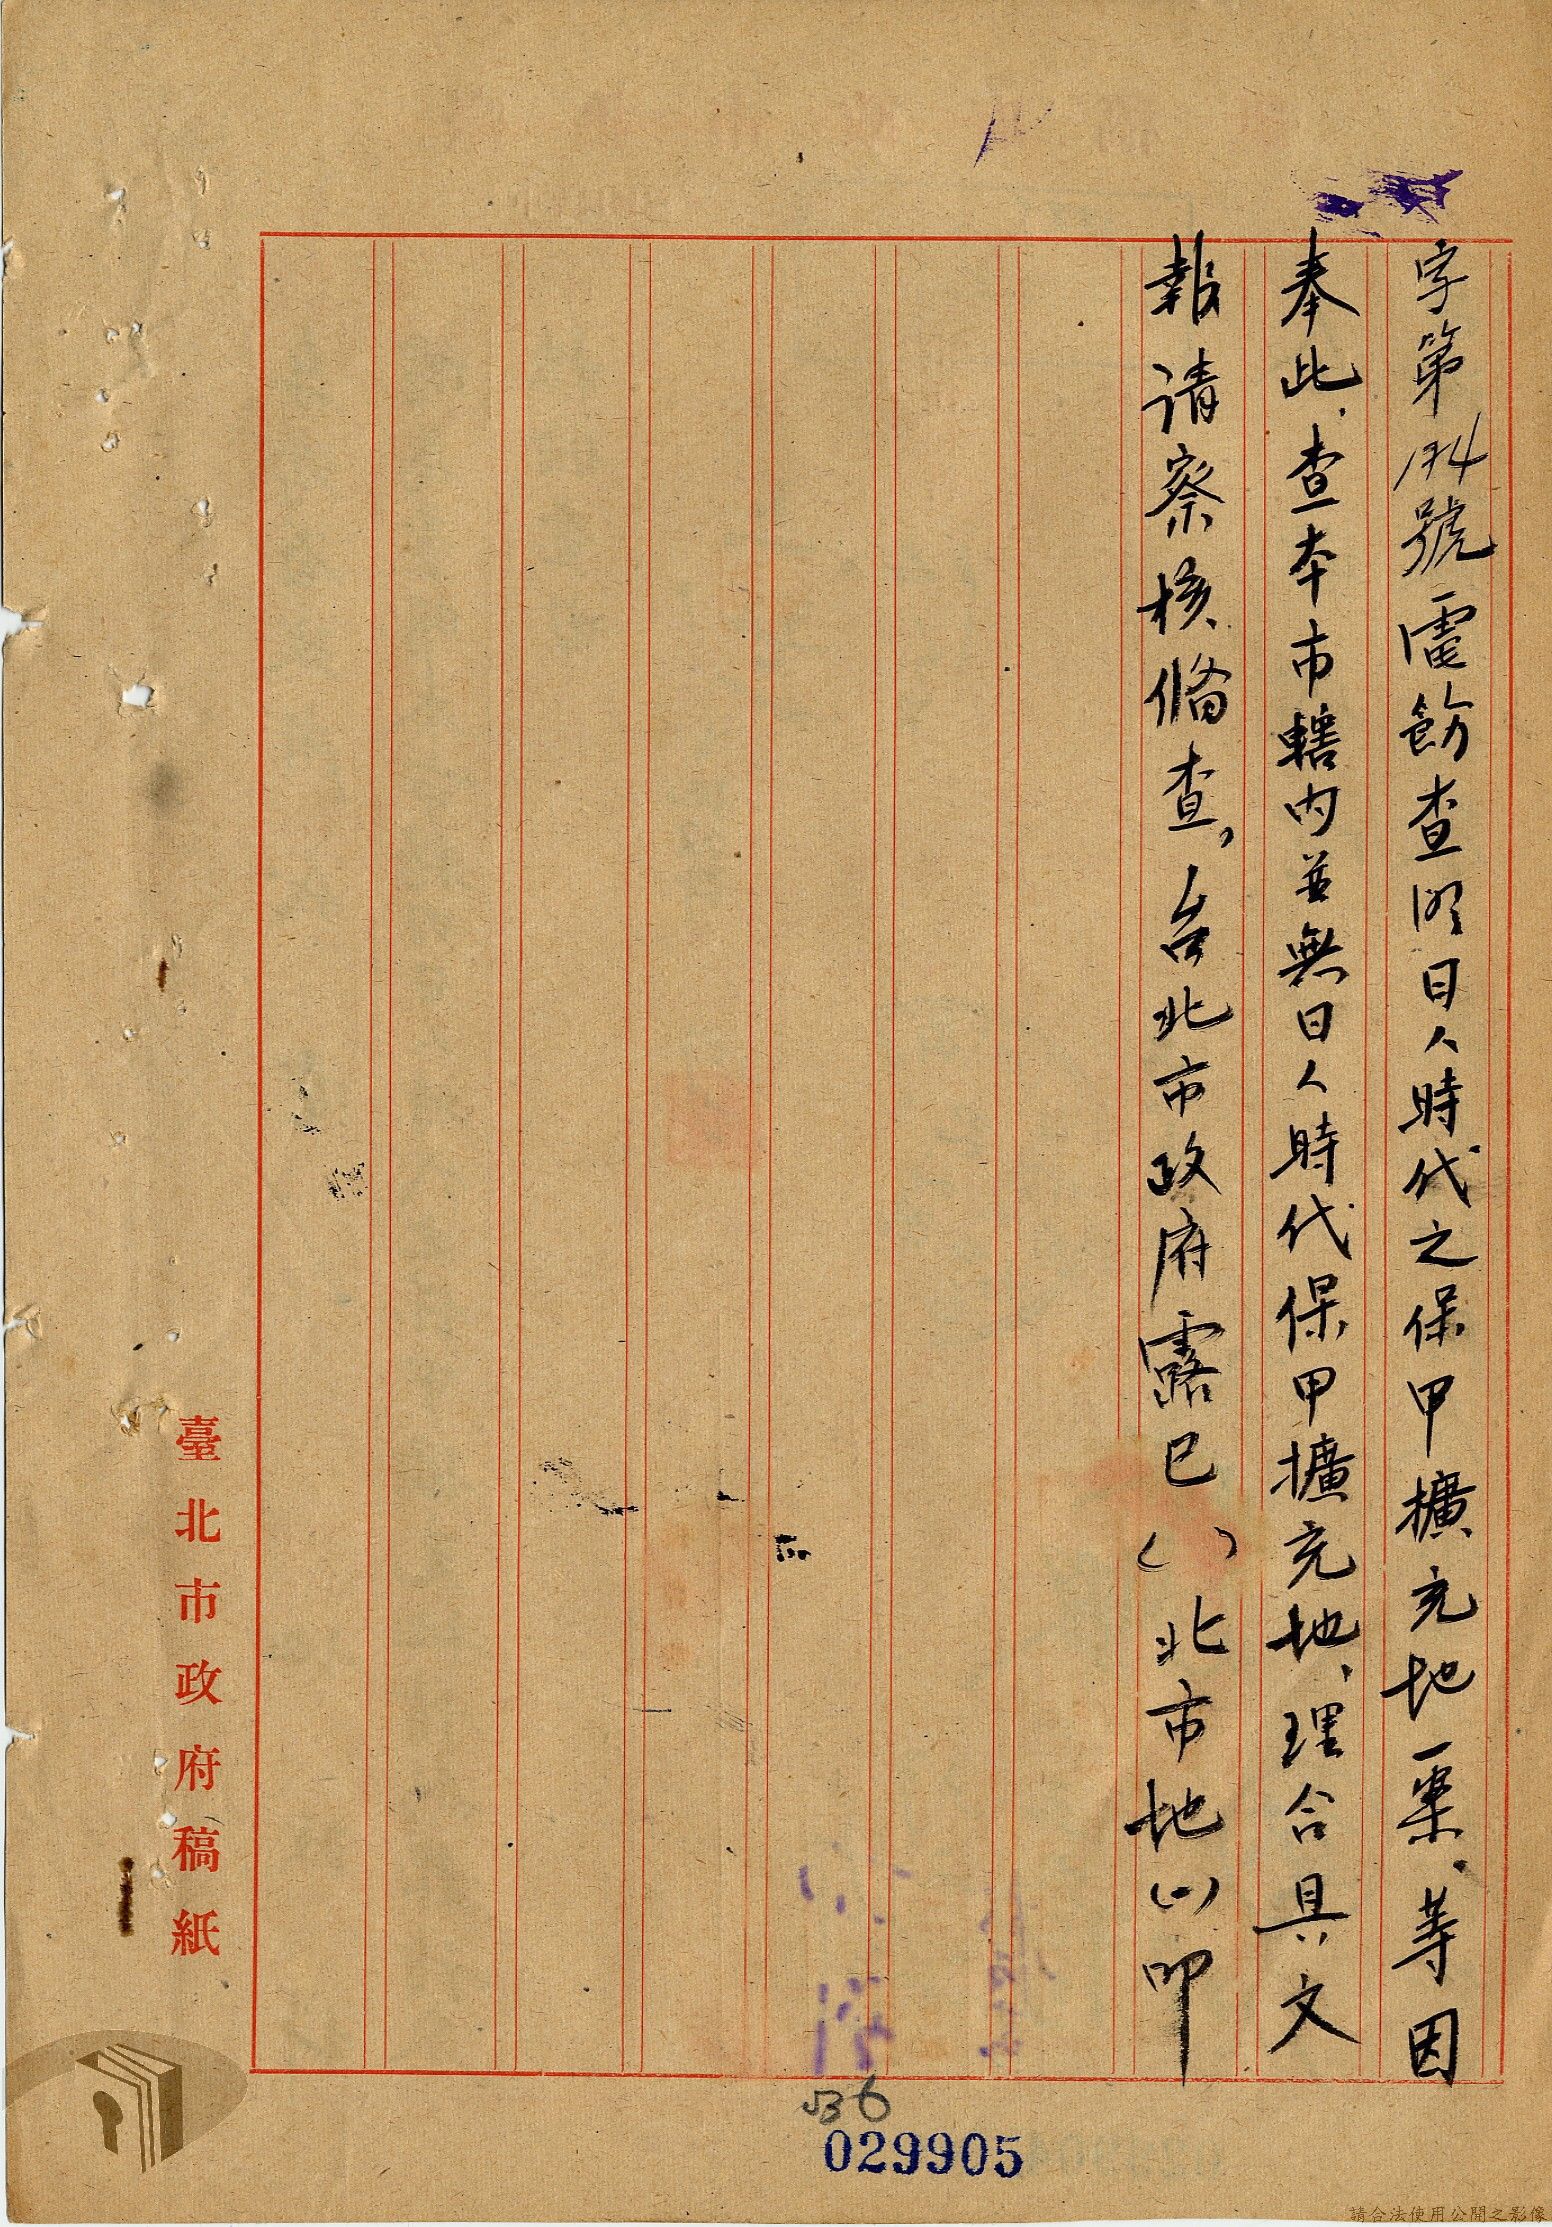 字第174號電飭查明日人時代之保甲擴充地一案、等因
奉此、查本市轄內並無日人時代保甲擴充地、理合具文
報請察核備查，台北市政府露巳（ ）北市地(一)印
臺北市政府稿紙
029905
請合法使用公開之影像